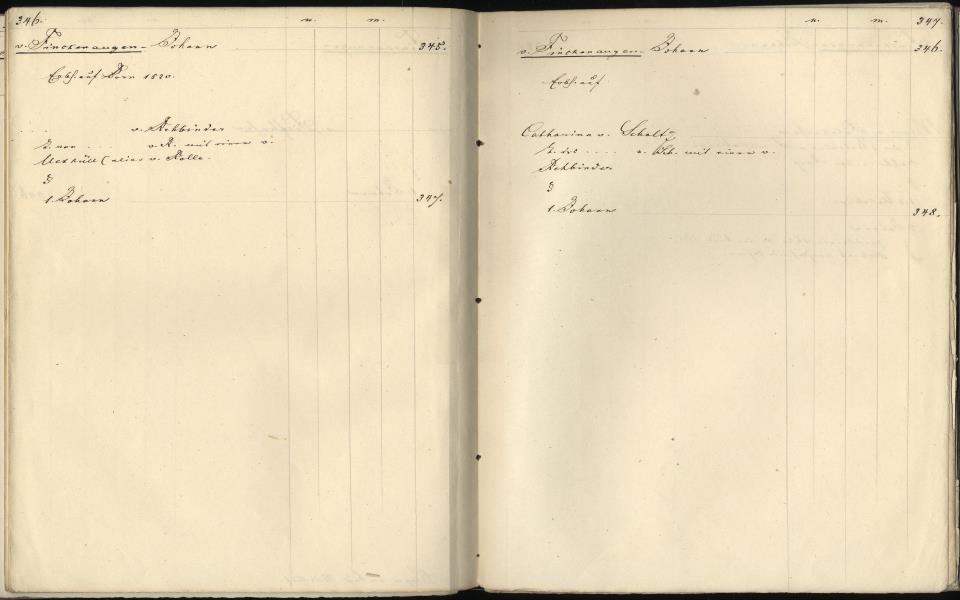 346. n. m.
v. Finckenaugen - Johann 345.
Erbh. auf 1520.
v. Rehbinder
v. R. mit einer v.
Uexküll (alias v. Rolle.
3
1. Johann 347.
n. m. 347.
v. Finckenaugen - Johann 346.
Erbh. auf
Catharina v. Scholtz
T. des .... v. Sch. mit einer v.
Rehbinder
3
1. Johann 348.